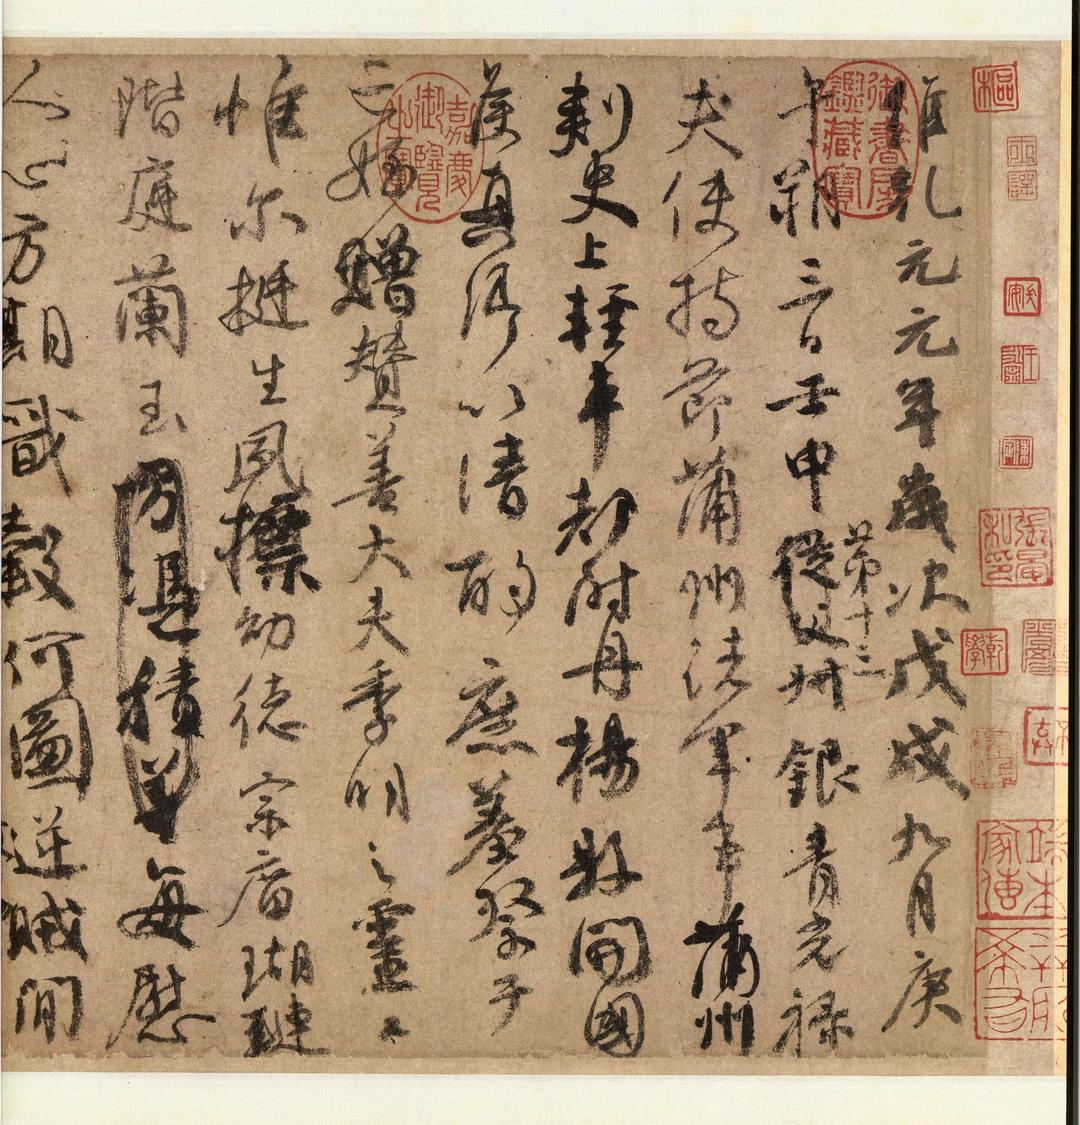 維乾元元年歲次戊戌九月庚
午朔三日壬申從父叔銀青光祿
第十三
夫使持節蒲州諸軍事蒲州
刺史上輕車都尉丹楊縣開國
侯真卿以清酌庶羞祭于
亡姪贈贊善大夫季明之靈曰
惟尔挺生夙標幼德宗廟瑚璉
階庭蘭玉方憑積善每慰
人心方期戩穀何圖逆賊閒
御書房鑑藏寶
嘉慶御覽之寶
樞
張晏私印